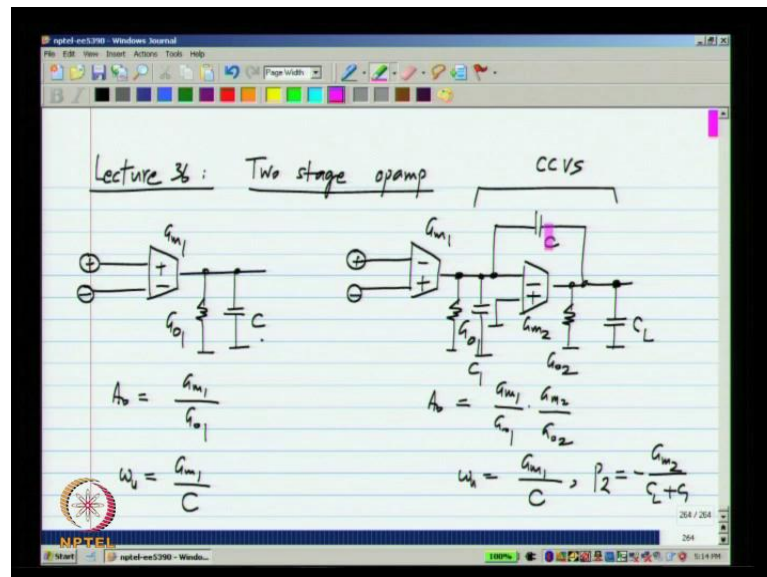 nptel-ee5390 - Windows Journal
File Edit View Insert Actions Tools Help
Page Width
B I
Lecture 36 : Two stage opamp
CCVS
Gm1
+
-
+
-
Go1
C
Gm1
+
-
-
+
Go1
C1
C
-
+
Gm2
Go2
CL
A0 = Gm1 / Go1
A0 = Gm1 / Go1 . Gm2 / Go2
ωu = Gm1 / C
ωu = Gm1 / C , P2 = - Gm2 / CL + C1
264 / 264
264
NPTEL
Start
nptel-ee5390 - Windo...
100%
5:14 PM